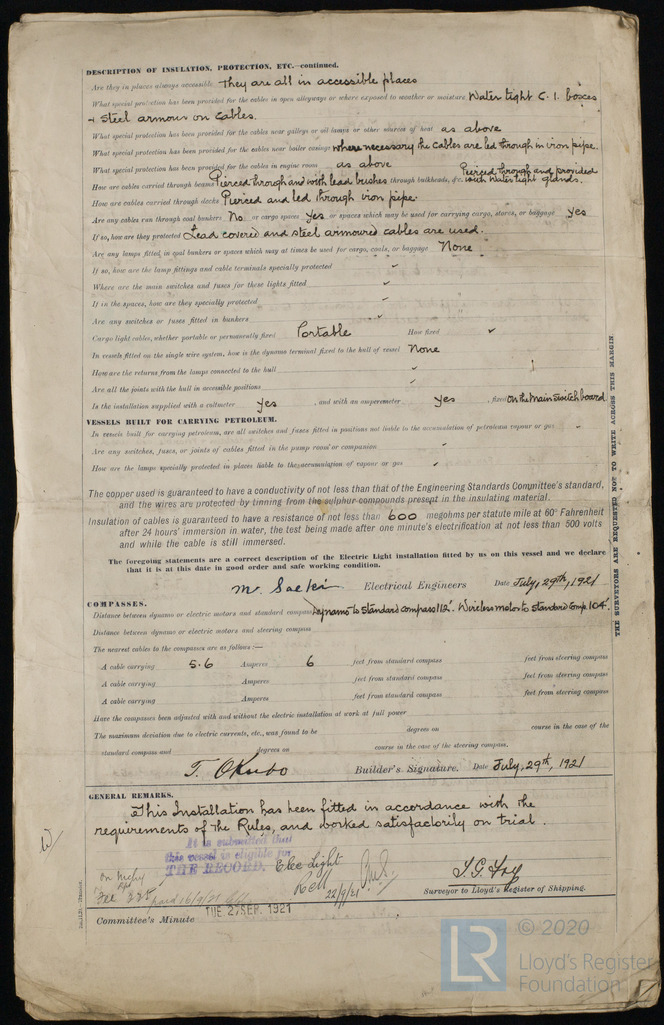 DESCRIPTION OF INSULATION, PROTECTION, ETC.—continued.
Are they in places always accessible They are all in accessible places
What special protection has been provided for the cables in open alleyways or where exposed to weather or moisture Water tight C. I. boxes
+ steel armour on cables.
What special protection has been provided for the cables near galleys or oil lamps or other sources of heat as above
What special protection has been provided for the cables near boiler casings where necessary the cables are led through in iron pipe.
What special protection has been provided for the cables in engine room as above
How are cables carried through beams Pierced through and with lead bushes through bulkheads, &c. Pierced through and provided with water tight glands.
How are cables carried through decks Pierced and led through iron pipe.
Are any cables run through coal bunkers No or cargo spaces yes or spaces which may be used for carrying cargo, stores, or baggage yes
If so, how are they protected Lead covered and steel armoured cables are used.
Are any lamps fitted in coal bunkers or spaces which may at times be used for cargo, coals, or baggage None
If so, how are the lamp fittings and cable terminals specially protected
Where are the main switches and fuses for these lights fitted
If in the spaces, how are they specially protected
Are any switches or fuses fitted in bunkers
Cargo light cables, whether portable or permanently fixed Portable How fixed
In vessels fitted on the single wire system, how is the dynamo terminal fixed to the hull of vessel None
How are the returns from the lamps connected to the hull
Are all the joints with the hull in accessible positions
Is the installation supplied with a voltmeter yes , and with an amperemeter yes , fixed on the main switch board
VESSELS BUILT FOR CARRYING PETROLEUM.
In vessels built for carrying petroleum, are all switches and fuses fitted in positions not liable to the accumulation of petroleum vapour or gas
Are any switches, fuses, or joints of cables fitted in the pump room or companion
How are the lamps specially protected in places liable to the accumulation of vapour or gas
The copper used is guaranteed to have a conductivity of not less than that of the Engineering Standards Committee's standard,
and the wires are protected by tinning from the sulphur compounds present in the insulating material.
Insulation of cables is guaranteed to have a resistance of not less than 600 megohms per statute mile at 60° Fahrenheit
after 24 hours' immersion in water, the test being made after one minute's electrification at not less than 500 volts
and while the cable is still immersed.
The foregoing statements are a correct description of the Electric Light installation fitted by us on this vessel and we declare
that it is at this date in good order and safe working condition.
M. Saeki Electrical Engineers Date July, 29th, 1921
COMPASSES.
Distance between dynamo or electric motors and standard compass Dynamo to standard compass 112'. Wireless motor to standard comp. 104'.
Distance between dynamo or electric motors and steering compass
The nearest cables to the compasses are as follows:—
A cable carrying 5.6 Amperes 6 feet from standard compass feet from steering compass
A cable carrying Amperes feet from standard compass feet from steering compass
A cable carrying Amperes feet from standard compass feet from steering compass
Have the compasses been adjusted with and without the electric installation at work at full power
The maximum deviation due to electric currents, etc., was found to be degrees on course in the case of the
standard compass and degrees on course in the case of the steering compass.
T. Okubo Builder's Signature. Date July, 29th, 1921
GENERAL REMARKS.
This Installation has been fitted in accordance with the
requirements of the Rules, and worked satisfactorily on trial.
It is submitted that
this vessel is eligible for
THE RECORD. Elec Light
22/9/21
Surveyor to Lloyd's Register of Shipping.
Fee paid 16/9/21
TUE. 27 SEP. 1921
Committee's Minute
THE SURVEYORS ARE REQUESTED NOT TO WRITE ACROSS THIS MARGIN
© 2020
LR Lloyd's Register
Foundation